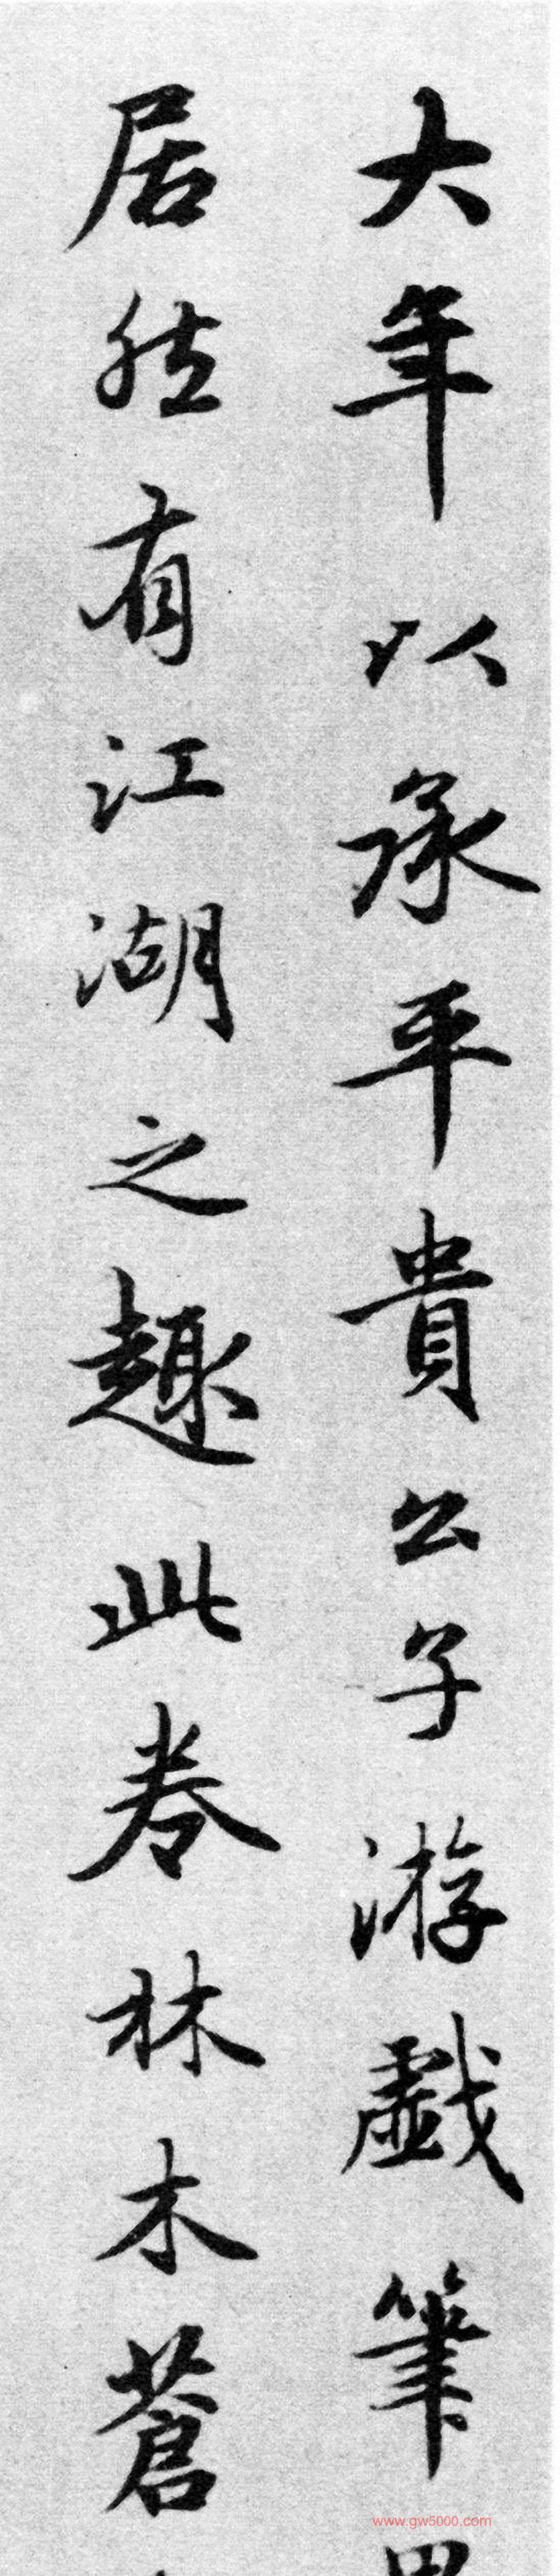 大年以承平貴公子游戲筆
居然有江湖之趣此卷林木蒼
www.gw5000.com